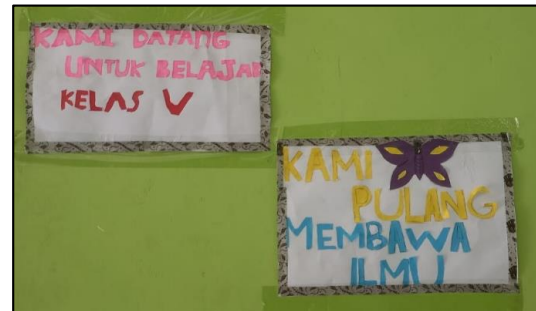 KAMI DATANG
UNTUK BELAJAR
KELAS V
KAMI
PULANG
MEMBAWA
ILMU